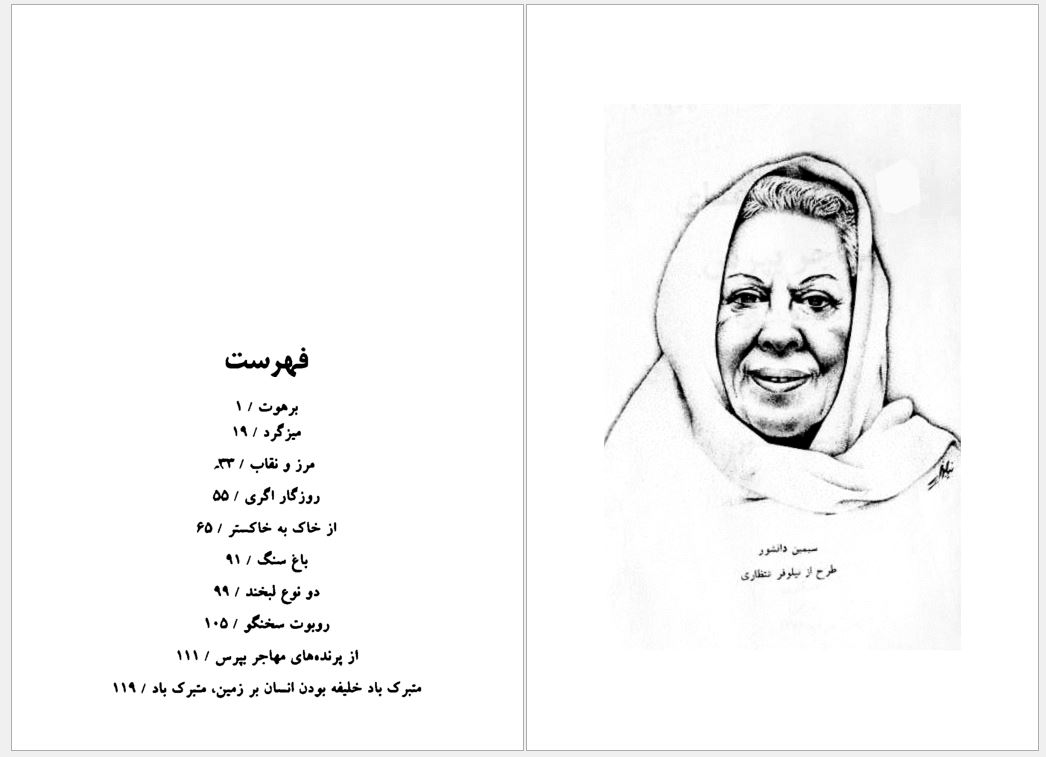 سیمین دانشور
طرح از نیلوفر نتظاری
فهرست
برهوت / ۱
میزگرد / ۱۹
مرز و نقاب / ۳۳
روزگار اگری / ۵۵
از خاک به خاکستر / ۶۵
باغ سنگ / ۹۱
دو نوع لبخند / ۹۹
روبوت سخنگو / ۱۰۵
از پرنده‌های مهاجر بپرس / ۱۱۱
متبرک باد خلیفه بودن انسان بر زمین، متبرک باد / ۱۱۹